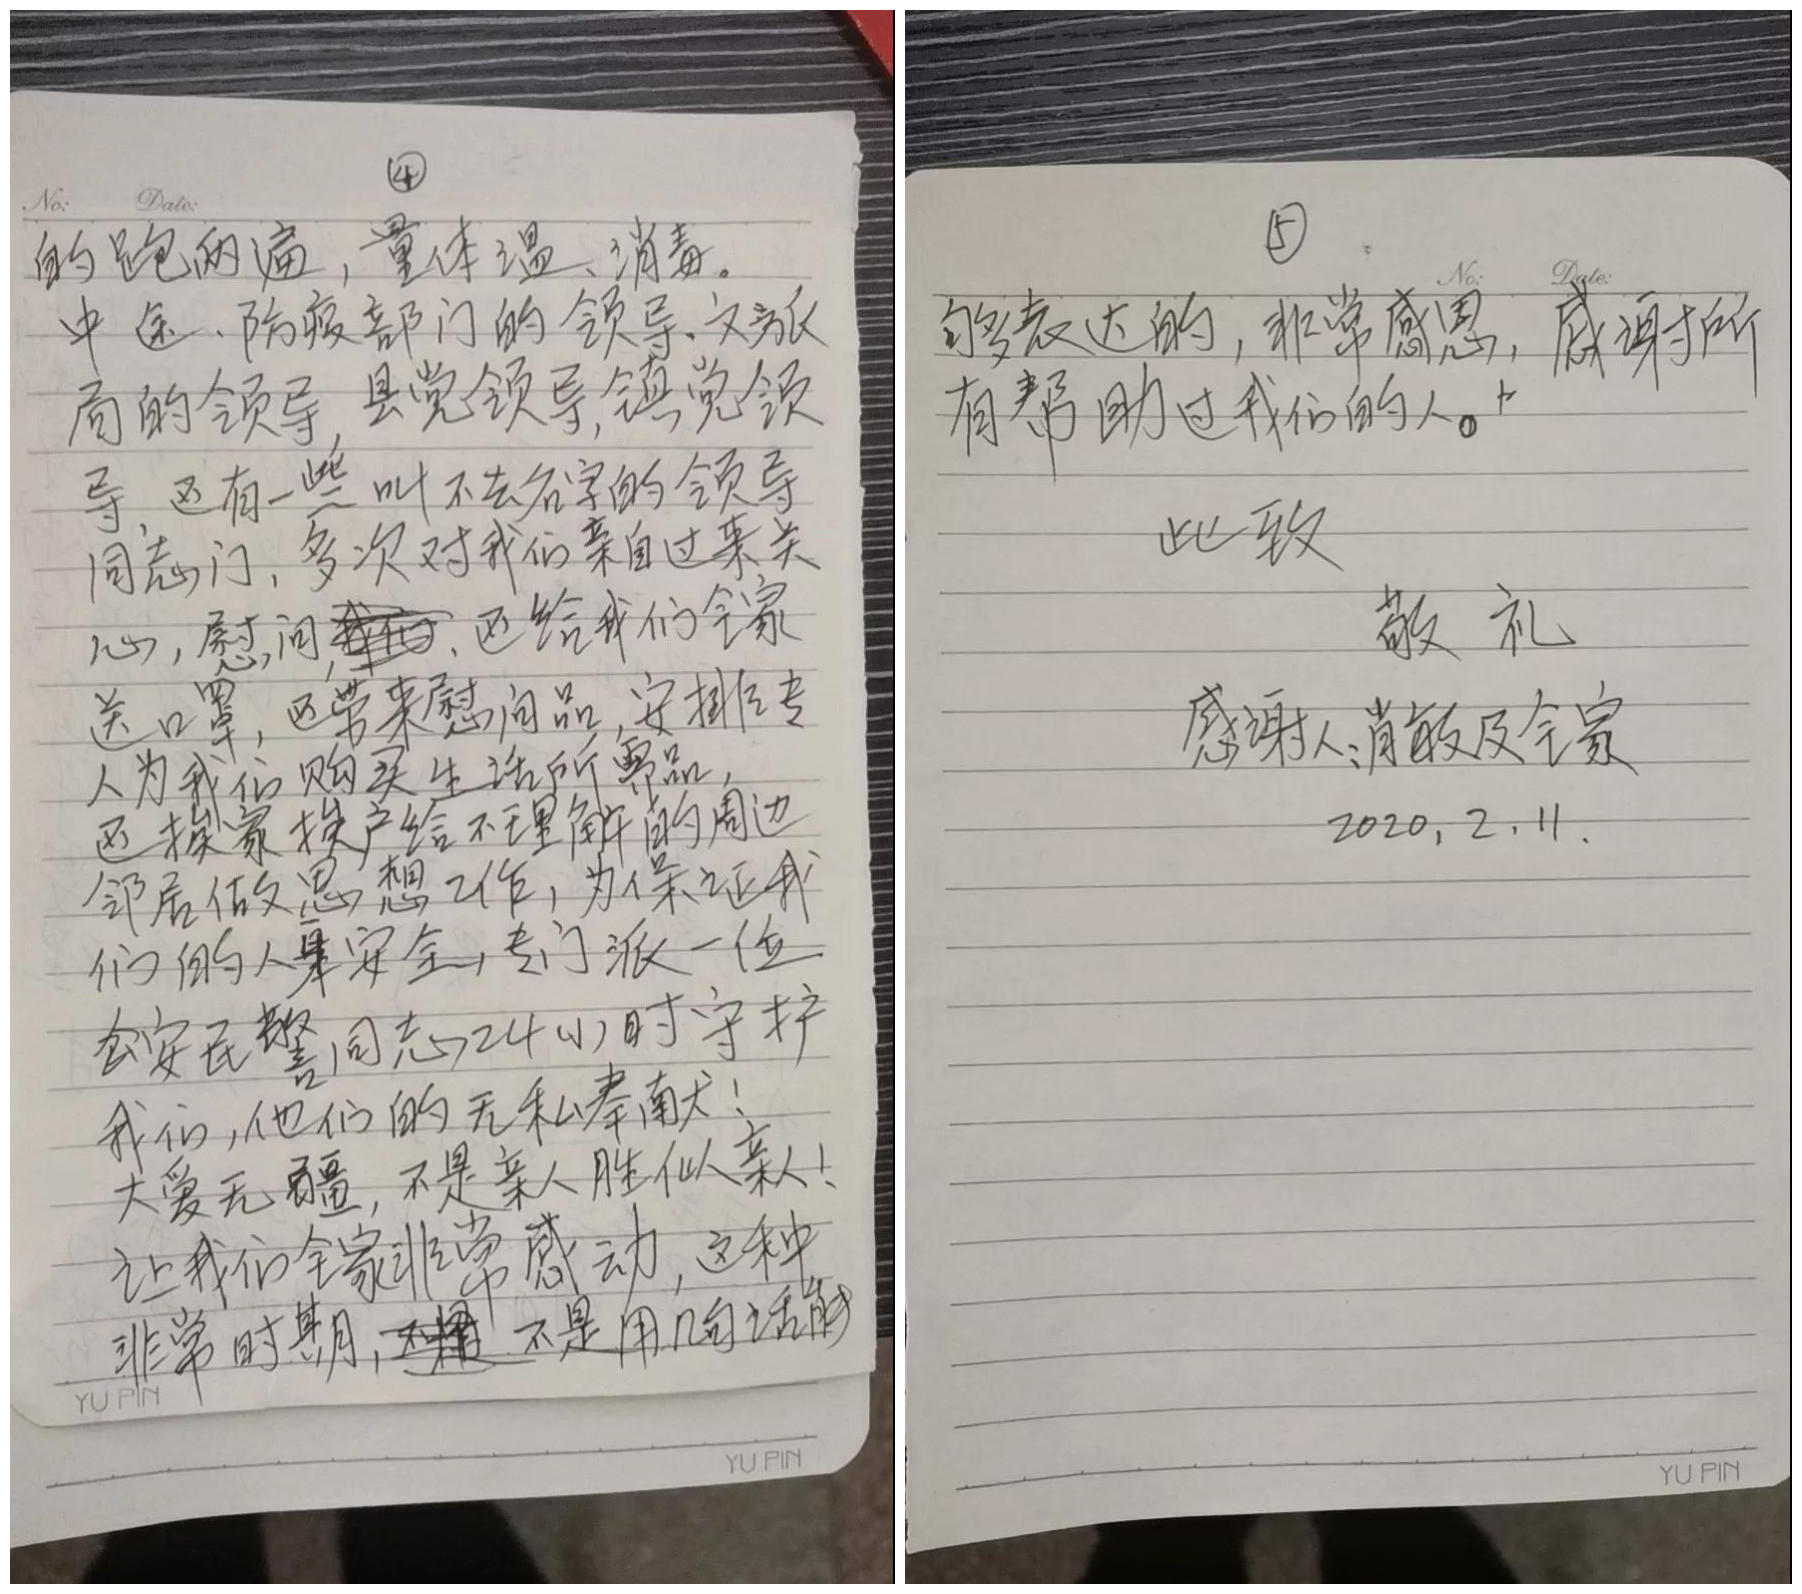 ④
No: Date:
的跑两遍，量体温、消毒。
中途、防疫部门的领导、文旅
局的领导，县党领导，镇党领
导，还有一些叫不去名字的领导
同志门，多次对我们亲自过来关
心，慰问，还给我们全家
送口罩，还带来慰问品，安排专
人为我们购买生活所需品，
还挨家挨户给不理解的周边
邻居做思想工作，为保证我
们的人身安全，专门派一位
公安民警同志24小时守护
我们，他们的无私奉献！
大爱无疆，不是亲人胜似亲人！
让我们全家非常感动，这种
非常时期，不是用几句话能
YU PIN
YU PIN
⑤
No: Date:
够表达的，非常感恩，感谢所
有帮助过我们的人。
此致
敬礼
感谢人：肖敏及全家
2020，2，11.
YU PIN